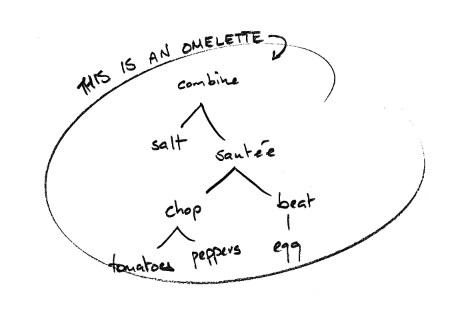 THIS IS AN OMELETTE
combine
salt
sautée
chop
beat
tomatoes
peppers
egg